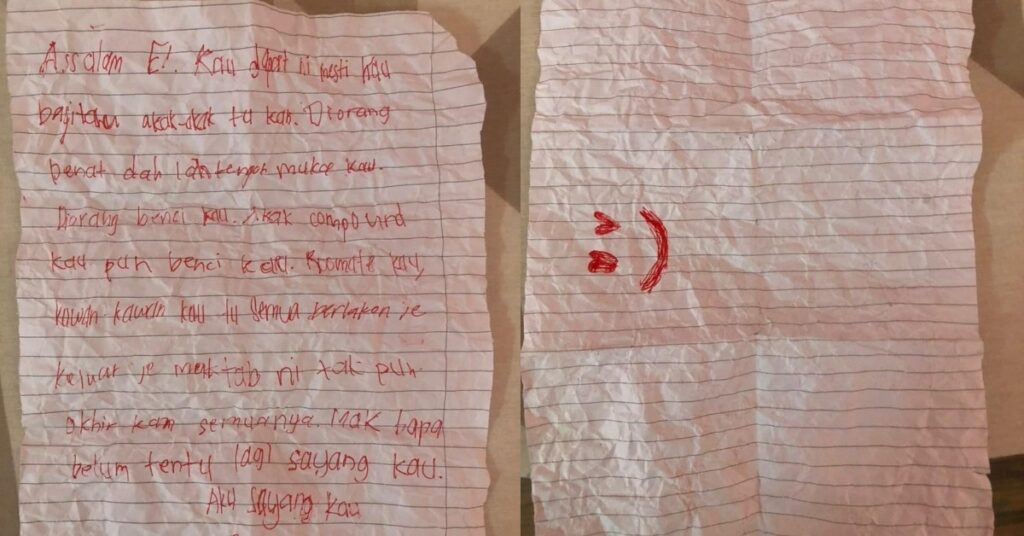 Assalam E!. Kau dapat ni mesti kau
bagitau akak-akak tu kan. Diorang
penat dah tengok muka kau.
Diorang benci kau. Akak compound
kau pun benci kau. Romate kau,
kawan kawan kau tu semua berlakon je
keluar je maktab ni tak pun
akhir kan semuanya. Mak bapa
belum tentu lagi sayang kau.
Aku sayang kau